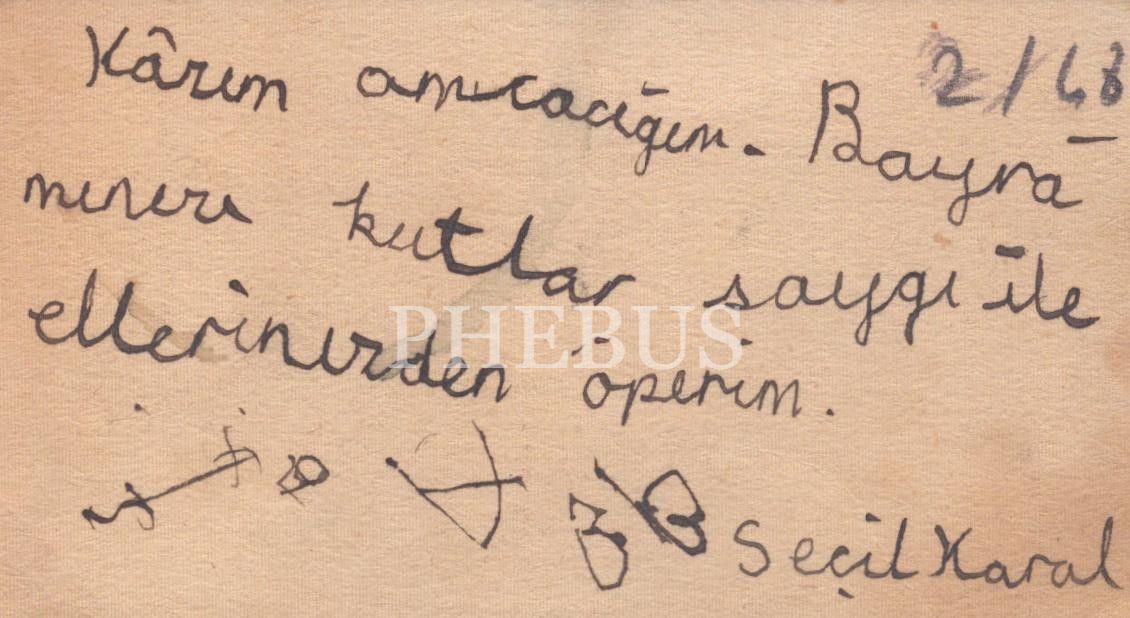 Kâzım amcacığım. Bayra
mınızı kutlar saygı ile
ellerinizden öperim.
PHEBUS
Seçil Karal